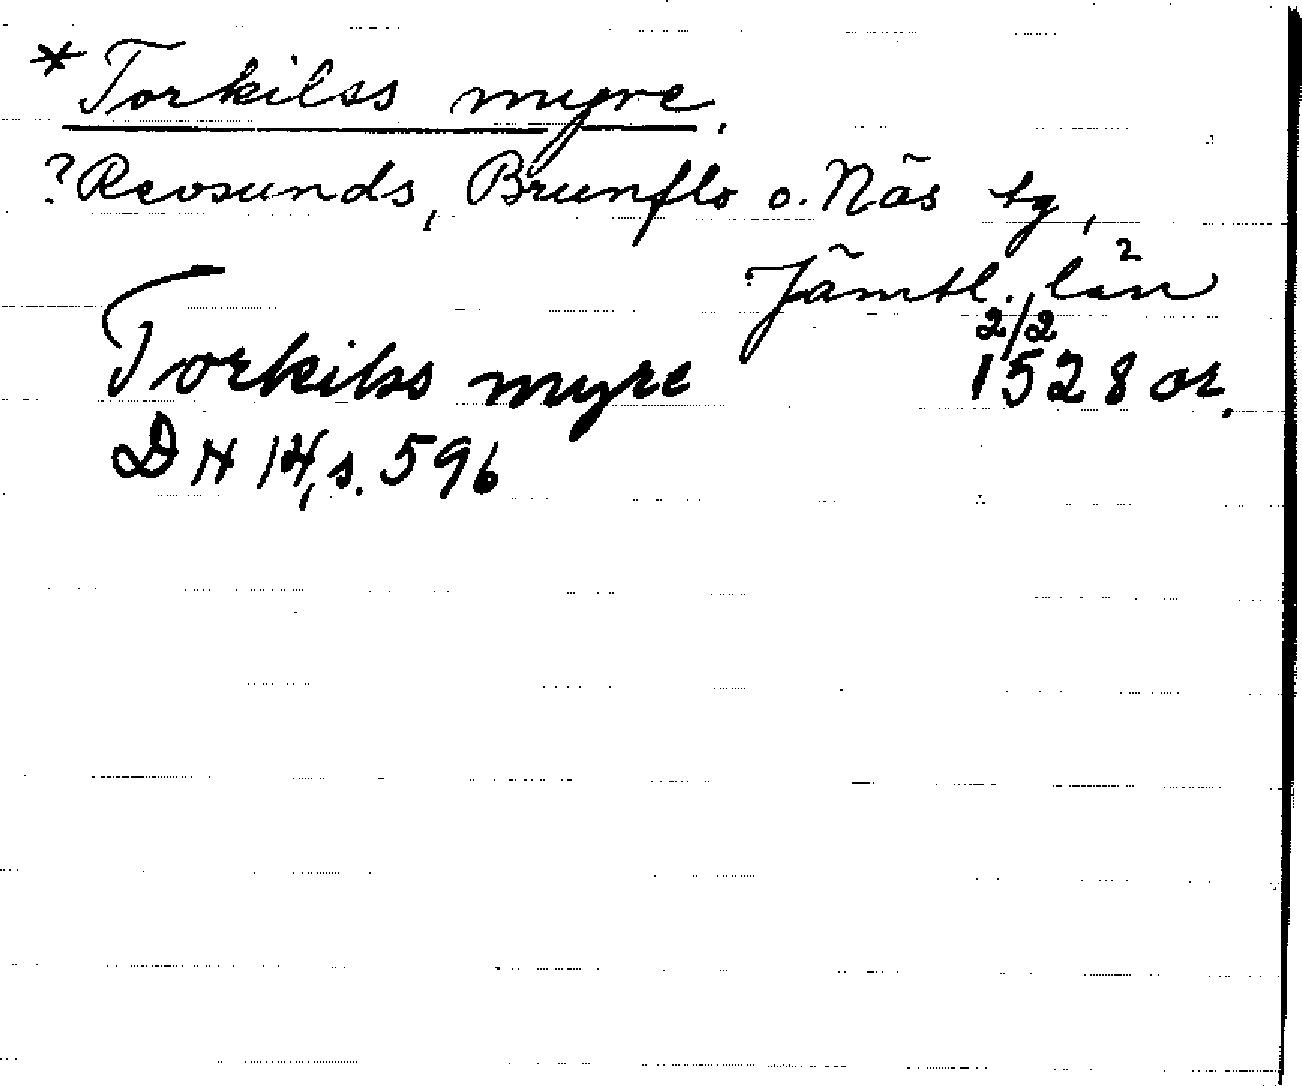 * Torkilss myre.
? Revsunds, Brunflo o. Näs tg,
Jämtl. län
Torkilss myre 2/2 1528 or.
DN 14, s. 596